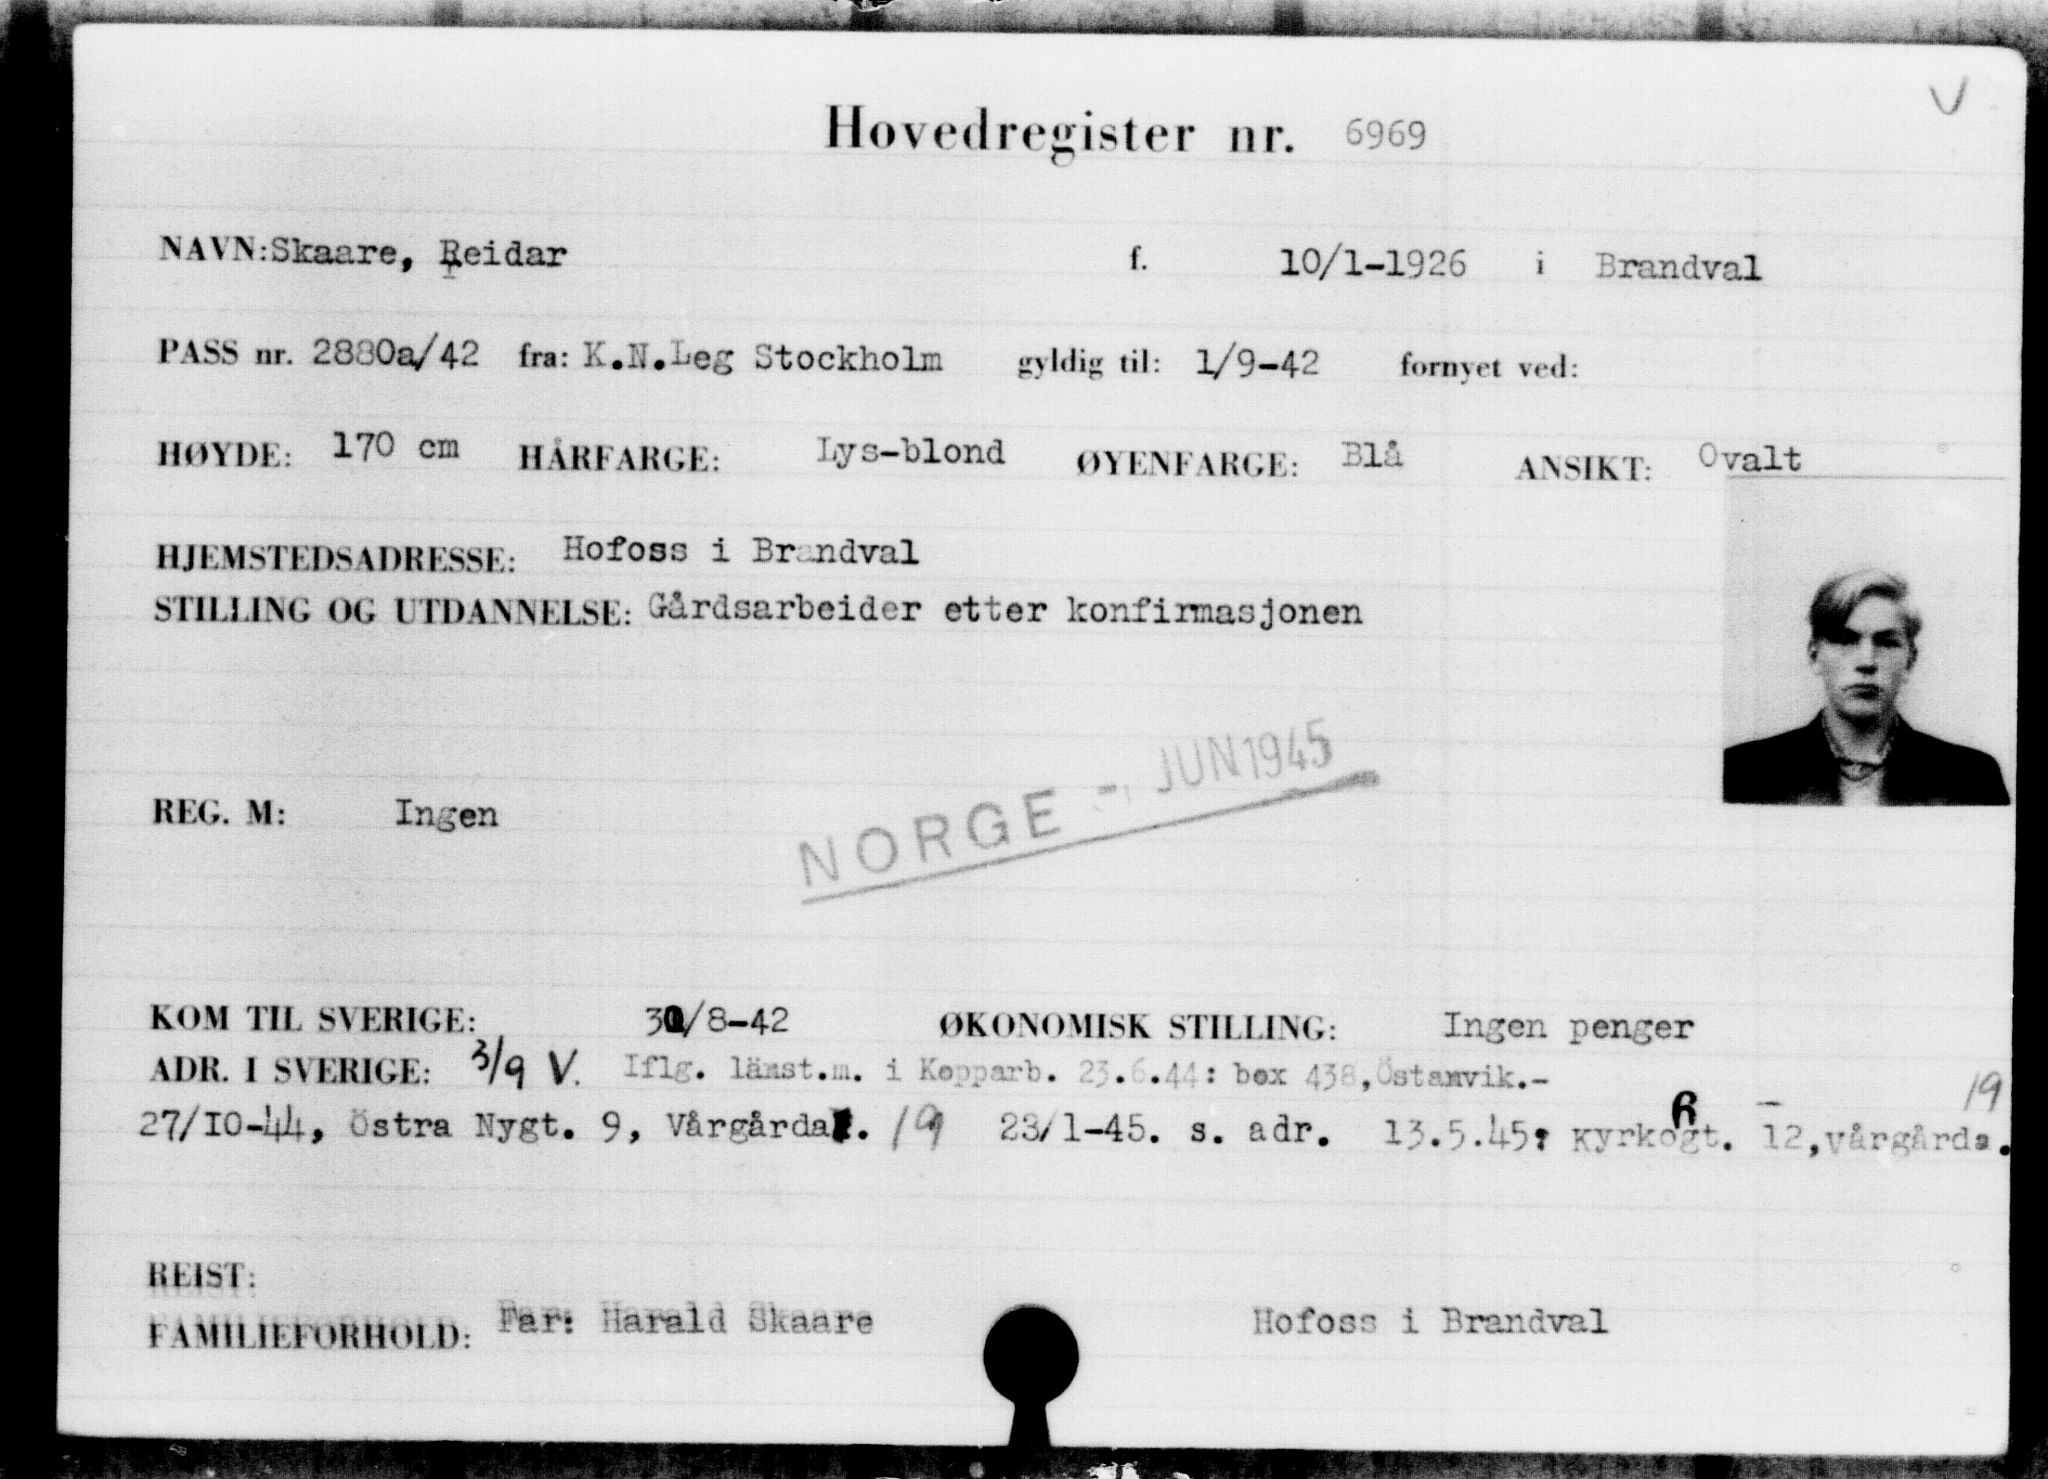 V
Hovedregister nr. 6969
NAVN: Skaare, Reidar f. 10/1-1926 i Brandval
PASS nr. 2880a/42 fra: K.N.Leg Stockholm gyldig til: 1/9-42 fornyet ved:
HØYDE: 170 cm HÅRFARGE: Lys-blond ØYENFARGE: Blå ANSIKT: Ovalt
HJEMSTEDSADRESSE: Hofoss i Brandval
STILLING OG UTDANNELSE: Gårdsarbeider etter konfirmasjonen
NORGE - JUN 1945
REG. M: Ingen
KOM TIL SVERIGE: /8-42 ØKONOMISK STILLING: Ingen penger
ADR. I SVERIGE: 3/9 V. Iflg. länst.m. i Kopparb. 23.6.44: box 438, Östanvik.-
27/10-44, Östra Nygt. 9, Vårgårda. 19 23/1-45. s. adr. 13.5.45: Kyrkogt. 12, Vårgårda. 19
REIST:
FAMILIEFORHOLD: Far: Harald Skaare Hofoss i Brandval